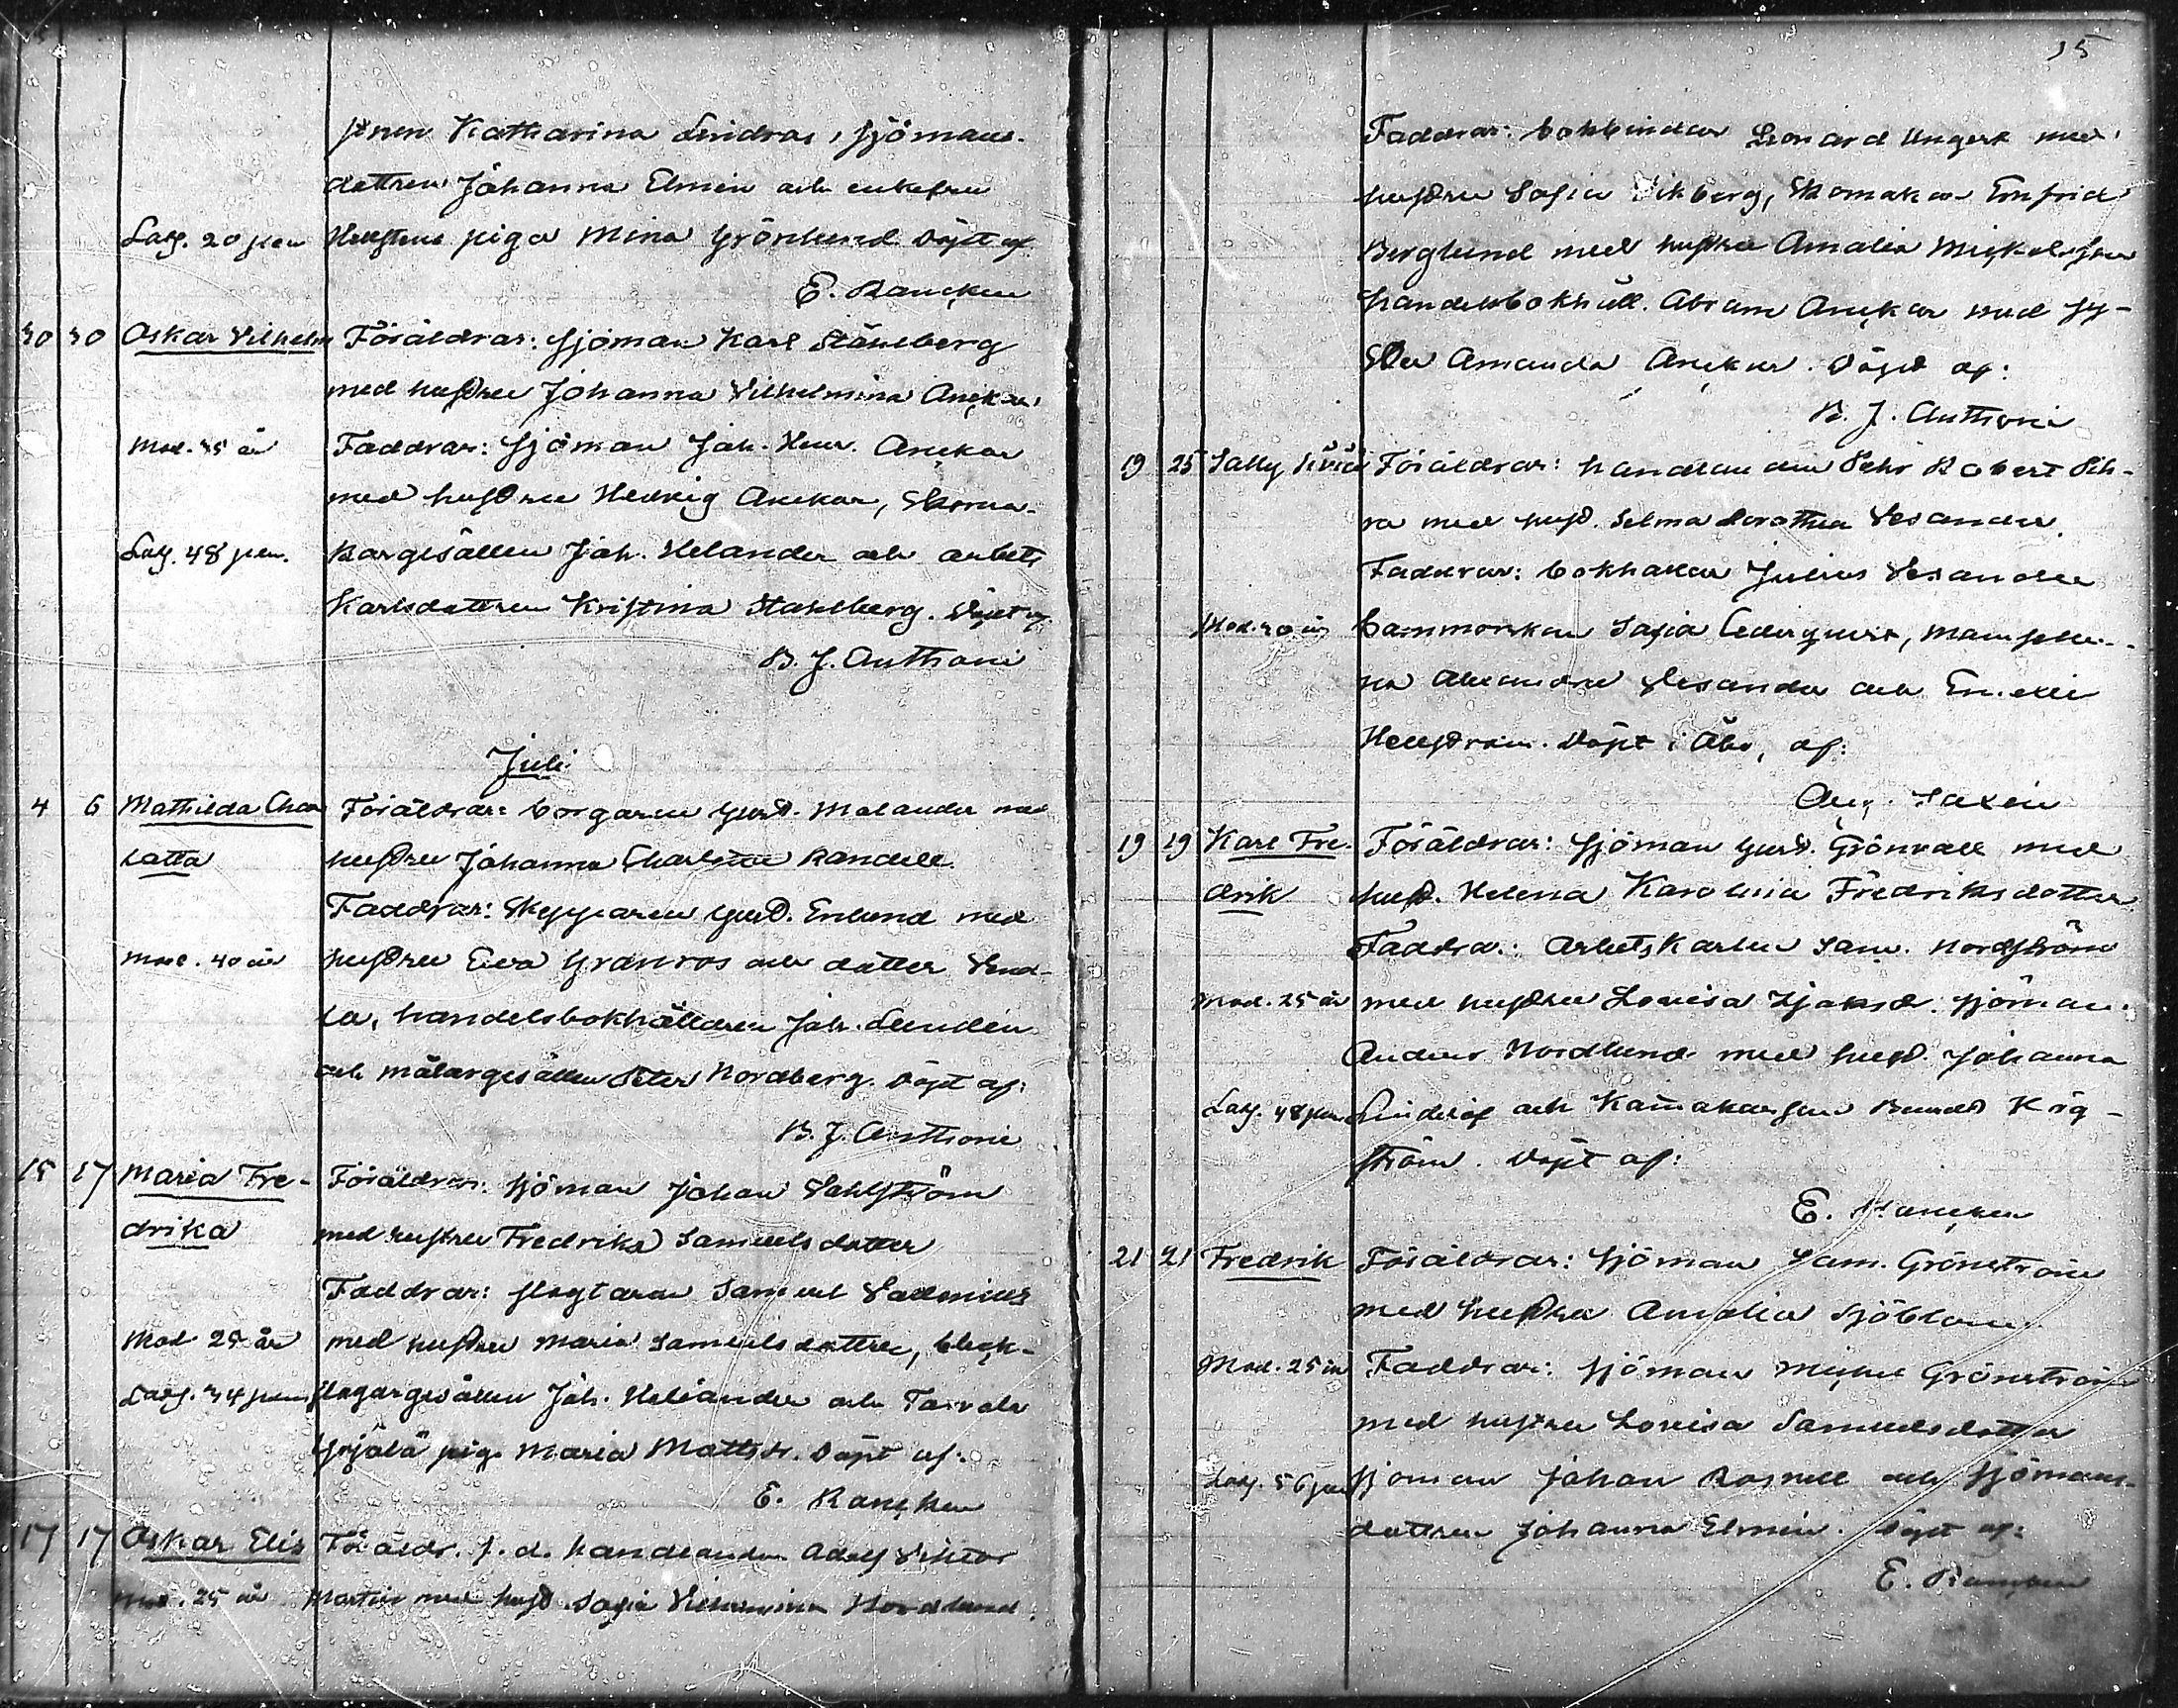 Katharina Lindros, sjömans-
dottren Johanna Elmén och enkefru
Lösg. 20 pen Hellstens piga Mina Grönlund. Döpt af
E. Rancken
30 30 Oskar Vilhelm Föräldrar: sjöman Karl Ståhlberg
med hustru Johanna Vilhelmina Anckar
Mod. 35 år Faddrar: sjöman Joh. Henr. Anckar
med hustru Hedvig Anckar, skoma-
Lösg. 48 pen. kargesällen Joh. Helander och arbets
karlsdottren Kristina Stahlberg. Döpt af
B. J. Anthoni
Juli
4 6 Mathilda Char Föräldrar: borgaren Gust. Malander med
lotta hustru Johanna Charlotta Randell.
Faddrar: Skepparen Gust. Enlund med
mod. 40 år hustru Eva Granroos och dotter Vend-
la, handelsbokhålldren Joh. Lundén
och målargesällen Peter Nordberg. Döpt af:
B. J. Anthoni
15 17 Maria Fre- Föräldrar: sjöman Johan Vahlström
drika med hustru Fredrika Samuelsdotter
Faddrar: slagtaren Samuel Salenius
Mod 28 år med hustru Maria Samuelsdotter, bleck-
Lösg. 34 pen slagargesällen Joh. Helander och
piga Maria Mattsdr. Döpt af:
E. Rancken
17 17 Oskar Elis Föräldr. f. d. handlanden Adolf Viktor
Mod. 25 år Martin med hust. Sofia Vilhelmina Nordlund.
15
Faddrar: bokbindar Leonard Ungert med
hustru Sofia Vikberg, Skomakar Enfrid
Berglund med hustru Amalia Mickelsson
handelsbokhåll. Abram Anckar med sy-
ster Amanda Anckar. Döpt af:
B. J. Anthoni
19 25 Sally Föräldrar: handlanden Pehr Robert Pih-
ra med hust. Selma Dorothea Vesander.
Faddrar: bokhållar Julius Vesander
Mod. 20 år barnmorskan Sofia Cederqvist, mamsell-
na Alexandra Vesander och Emelie
Hellström. Döpt i Åbo, af:
Aug. Saxén
19 19 Karl Fre- Föräldrar: sjöman Gust. Grönvall med
drik hust. Helena Karolina Fredriksdotter
Faddra.: Arbetskarlen Sam. Nordström
Mod. 25 år med hustru Lovisa sjöman
Anders Nordlund med hust. Johanna
Lösg. 48 pen Lindelöf och
ström. Döpt af:
E. Rancken
21 21 Fredrik Föräldrar: sjöman Sam. Grönström
med hustru Amalia Sjöblom.
Mod. 25 år Faddrar: sjöman Michel Grönström
med hustru Lovisa Samuelsdotter
Lösg. 56 pen sjöman Johan Rosnell och sjömans-
dottren Johanna Elmén. Döpt af:
E. Rancken